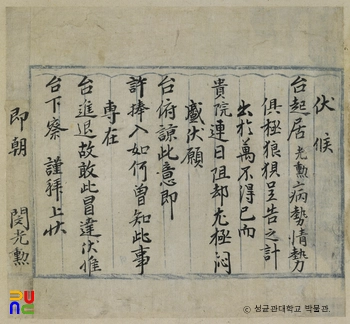 伏候
台起居光勳病勢情勢
俱極狼狽呈告之計
出於萬不得已而
貴院連日阻却尤極悶
蹙伏願
台俯諒此意即
許捧入如何曾知此事
專在
台進退故敢此冒達伏惟
台下察 謹拜上狀
即朝 閔光勳
© 성균관대학교 박물관